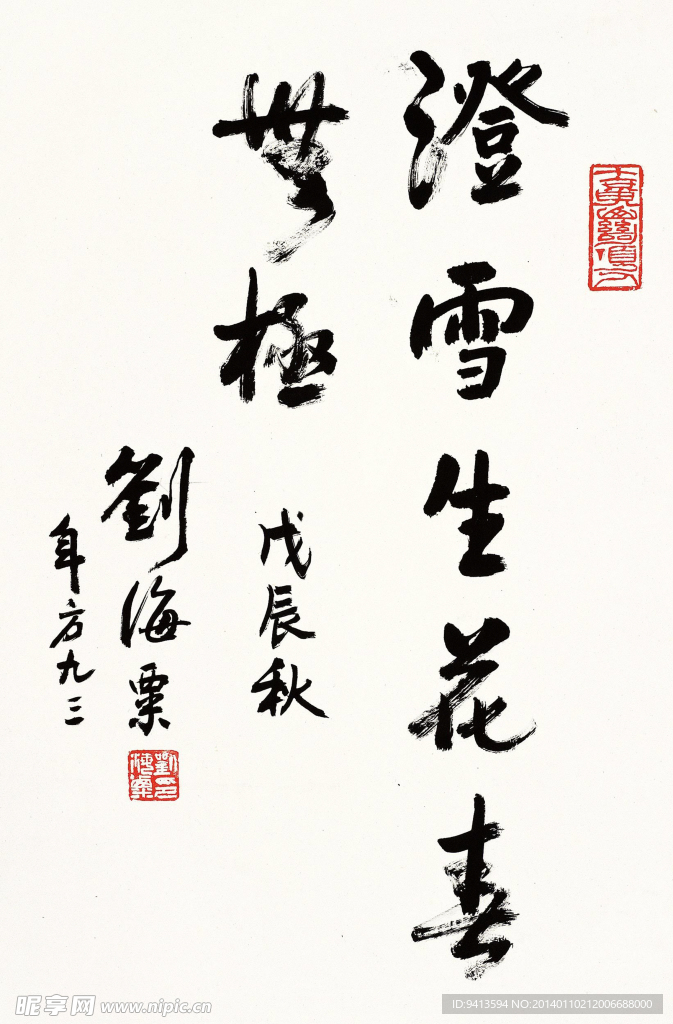 澄雪生花春
無極
戊辰秋
劉海粟
年方九三
昵享网 www.nipic.cn
ID:9413594 NO:20140110212006688000